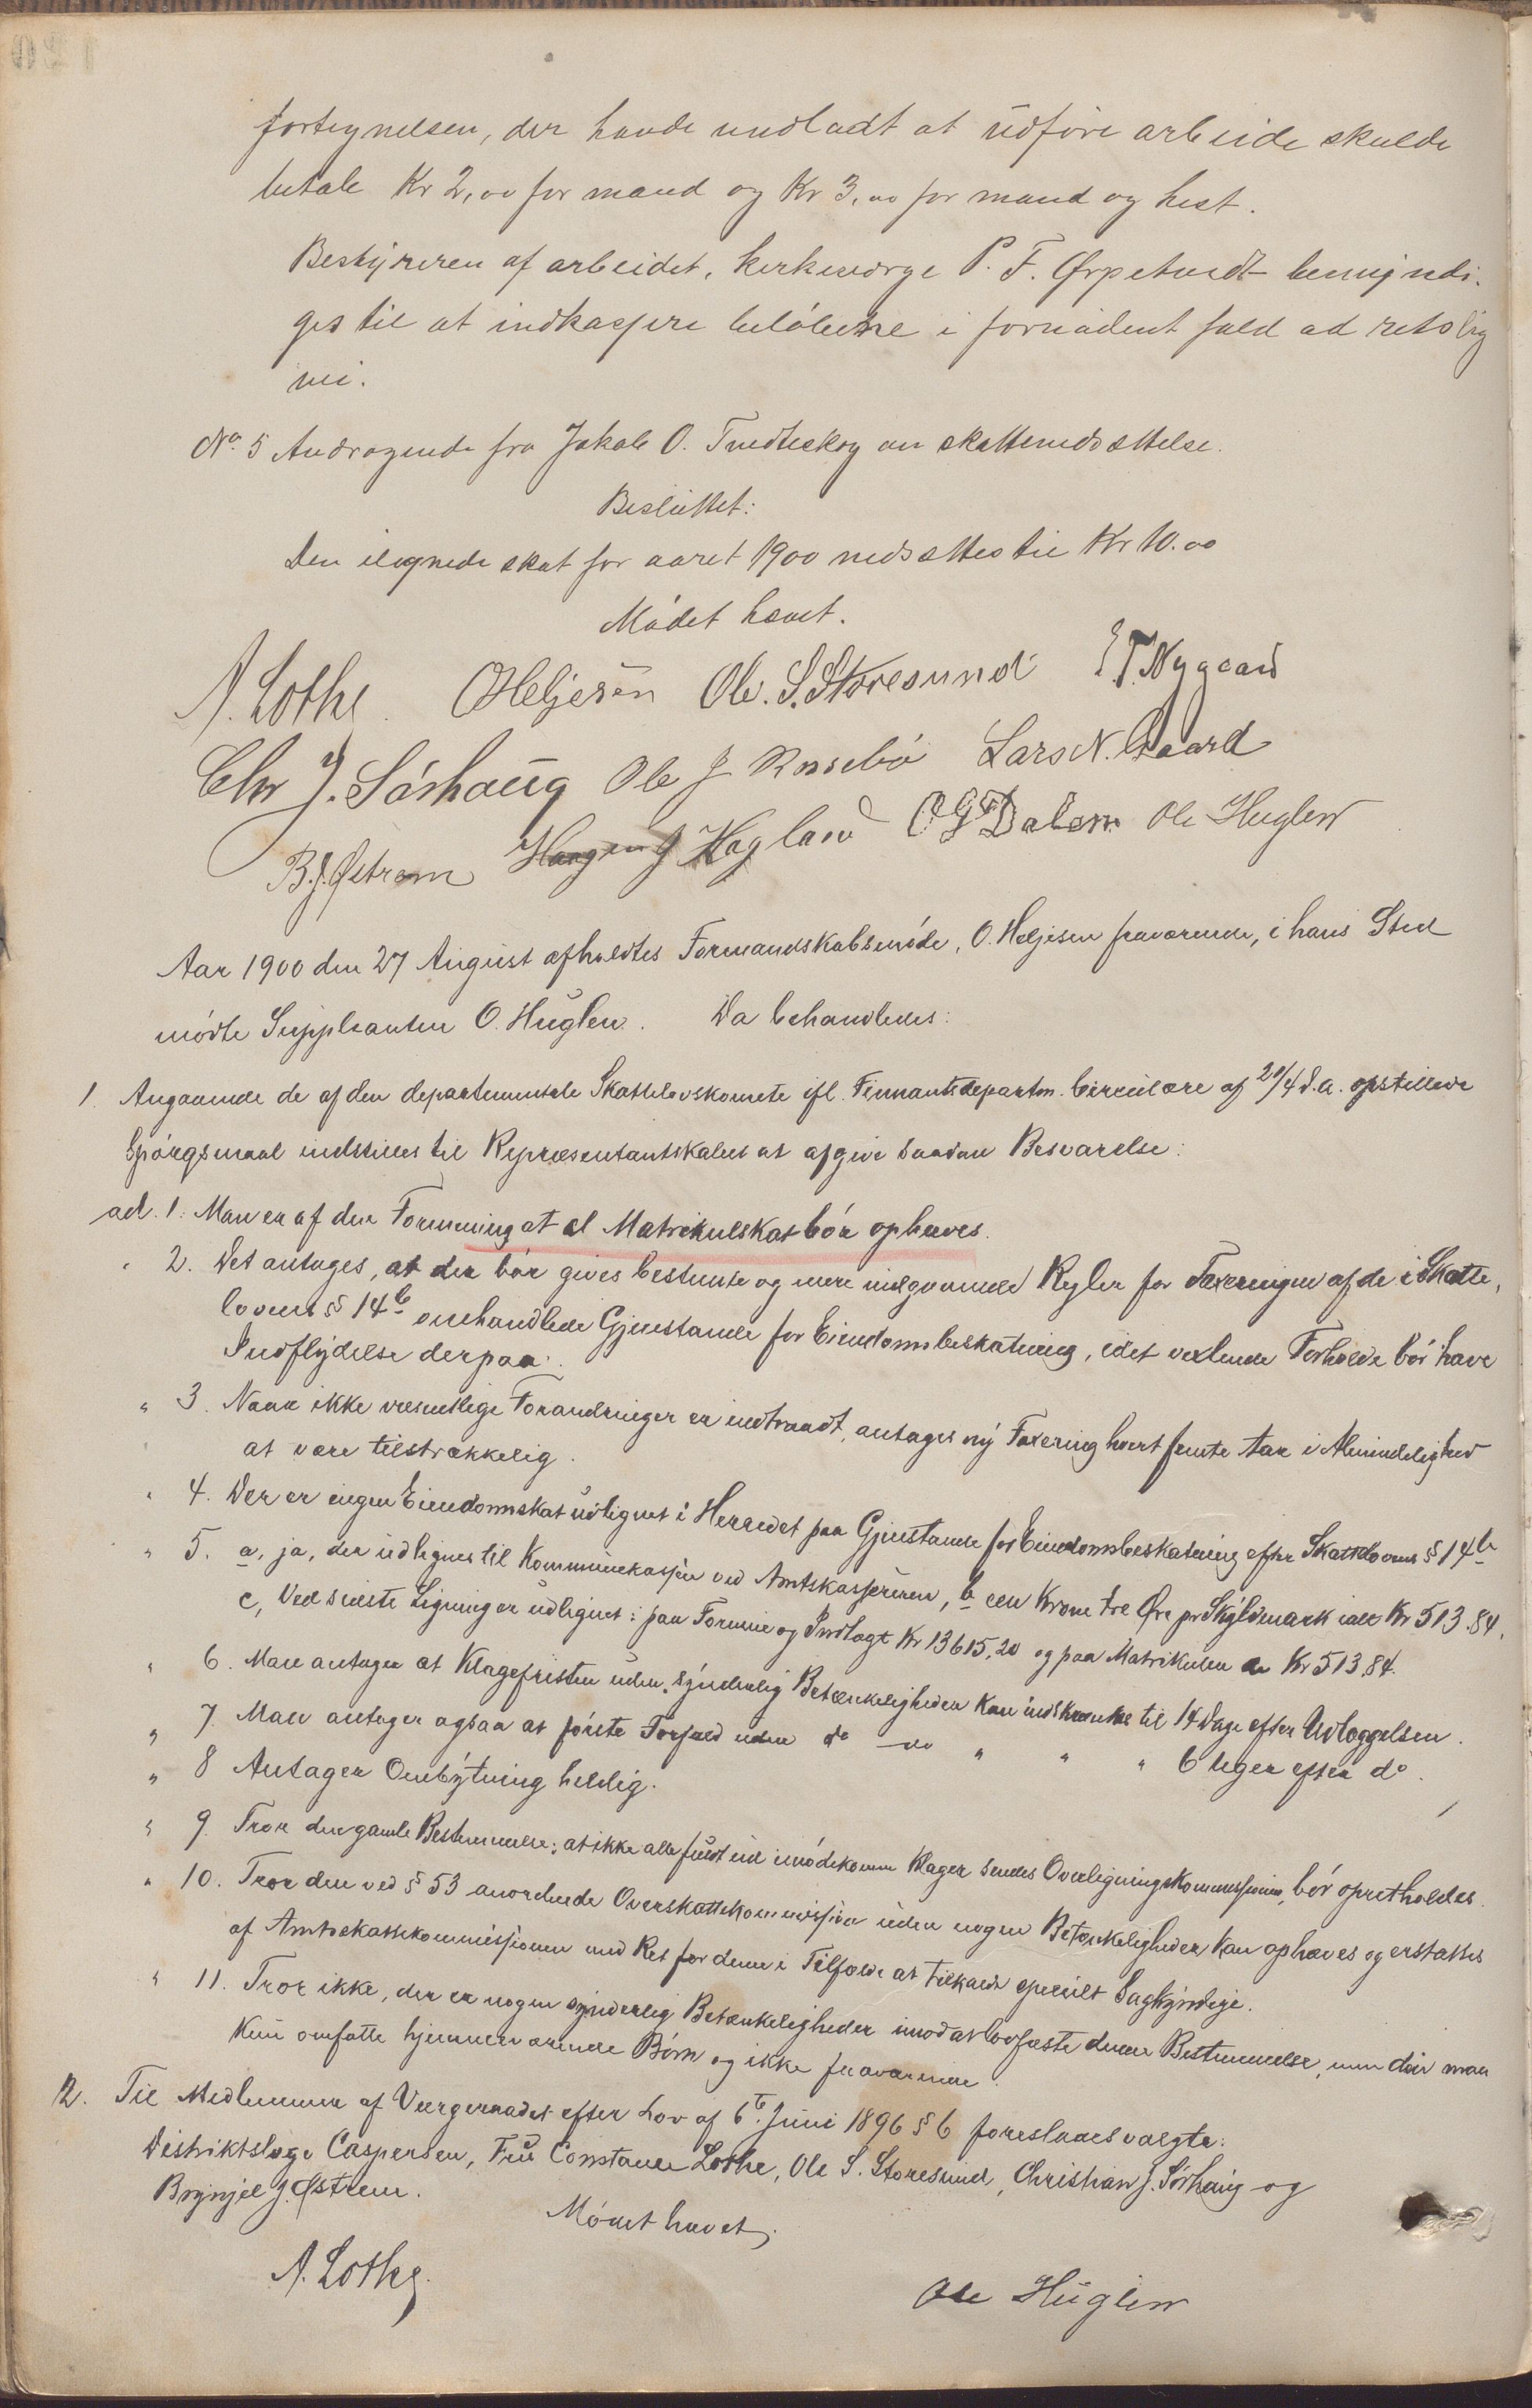 fortegnelsen, der havde undladt at udføre arbeide skulde
betale Kr 2,00 for mand og Kr 3,00 for mand og hest.
Bestyreren af arbeidet, kirkeværge P. F. Ørpetvedt bemyndi-
ges til at indkassere beløbene i fornødent fald ad retslig
vei.
No. 5 Andragende fra Jakob O. Tvedteskog om skattenedsættelse.
Besluttet:
Den ilignede skat for aaret 1900 nedsættes til Kr 10.00
Mødet hævet.
A. Lothe. O Heljesen Ole. S. Storesund E T. Nygaard
Chr J. Sørhaug Ole J Rossebø Lars N. Gaard
B. J. Østrem Haagen J Hagland O G Dalen Ole Huglen
Aar 1900 den 27 August afholdtes Formandskabsmøde, O. Heljesen fraværende, i hans Sted
mødte Supplianten O. Huglen. Da behandledes:
1. Angaaende de af den departementale Skattelovskomite ifl. Finnantsdepartm. Circulære af 20/4 d.a. opstillede
Spørgsmaal indstilles til Repræsentantskabet at afgive saadan Besvarelse:
ad. 1. Man er af den Formening at al Matrikulskat bør ophæves.
" 2. Det antages, at der bør gives bestemte og mere indgaaende Regler for Taxeringen af de i Skatte-
lovens § 14 b omhandlede Gjenstande for Eiendomsbeskatning, idet vexlende Forholde bør have
Indflydelse derpaa.
" 3. Naar ikke væsentlige Forandringer er indtraadt, antages ny Taxering hvert femte Aar i Almindelighed
at være tilstrækkelig.
" 4. Der er ingen Eiendomskat udlignet i Herredet paa Gjenstande for Eiendomsbeskatning efter Skattelovens § 14 b
" 5. a, ja, der udlignes til Kommunekassen ved Amtskassereren, b een Krone tre Øre pr Skyldmark ialt Kr 513.84,
c, Ved sidste Ligning er udlignet: paa Formue og Indtægt Kr 13615,20 og paa Matrikulen Kr 513,84.
" 6. Man antager at Klagefristen uden synderlig Betænkeligheder kan indskrænkes til 14 Dage efter Udlæggelsen.
" 7. Man antager ogsaa at første Forfald uden do do " " " 6 Uger efter do.
" 8 Antager Ombytning heldig.
" 9. Tror den gamle Bestemmelse; at ikke alle fuldt ud imødekomne Klager sendes Overligningskommissionen, bør opretholdes.
" 10. Tror den ved § 53 anordnede Overskattekommission uden nogen Betænkeligheder kan ophæves og erstattes
af Amtsskattekommissionen med Ret for denne i Tilfælde at tilkalde specielt Sagkyndige.
" 11. Tror ikke, der er nogen synderlig Betænkeligheder imod at lovfæste denne Bestemmelse, men den maa
kun omfatte hjemmeværende Børn og ikke fraværende.
2. Til Medlemmer af Værgeraadet efter Lov af 6te Juni 1896 § 6 foreslaaes valgte:
Distriktslæge Caspersen, Fru Constance Lothe, Ole S. Storesund, Christian J. Sørhaug og
Brynjel J. Østrem.
Mødet hævet,
A. Lothe.
Ole Huglen